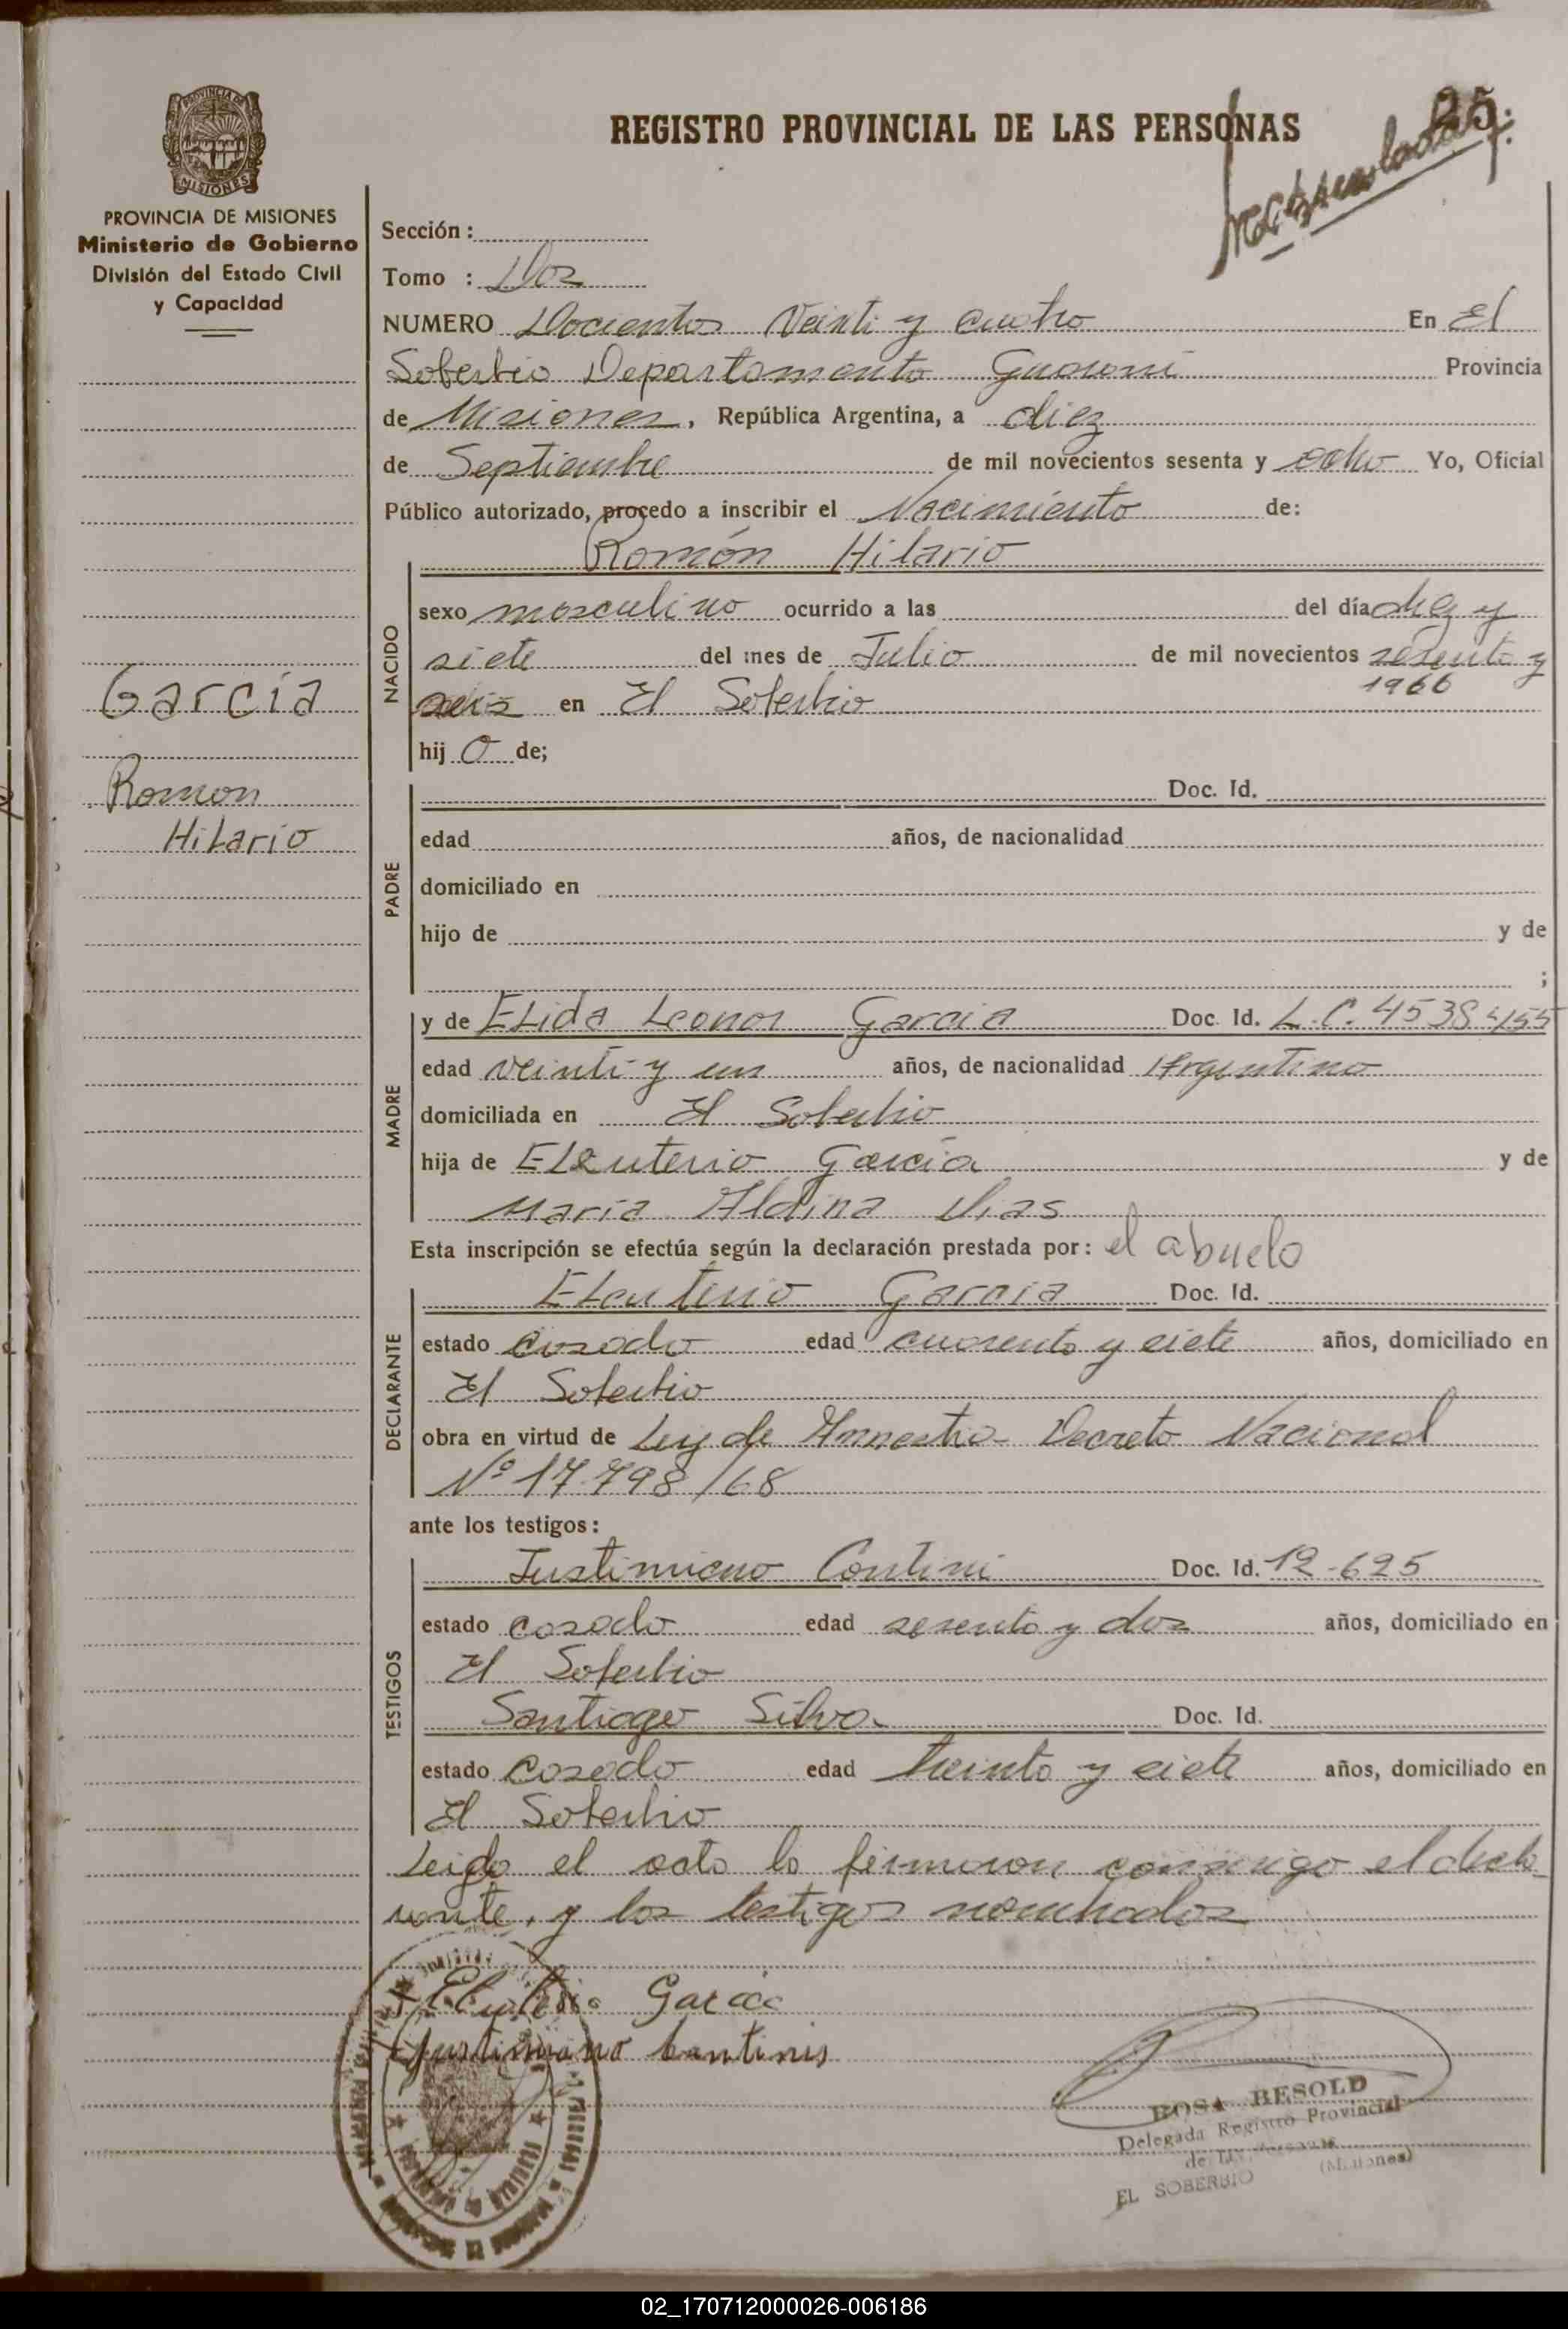 REGISTRO PROVINCIAL DE LAS PERSONAS
25
PROVINCIA DE MISIONES
PROVINCIA DE MISIONES
Ministerio de Gobierno
División del Estado Civil
y Capacidad
García
Ramon
Hilario
Sección :
Tomo : Dos
NUMERO Docientos Veinti y cuatro En El
Soberbio Departamento Guarani Provincia
de Misiones, República Argentina, a diez
de Septiembre de mil novecientos sesenta y ocho Yo, Oficial
Público autorizado, procedo a inscribir el Nacimiento de:
Ramón Hilario
NACIDO
sexo masculino ocurrido a las del día diez y
siete del mes de Julio de mil novecientos sesenta y
seis en El Soberbio 1966
hij o de;
PADRE
Doc. Id.
edad años, de nacionalidad
domiciliado en
hijo de y de
;
MADRE
y de Elida Leonor Garcia Doc. Id. L.C. 4538455
edad veinti y un años, de nacionalidad Argentina
domiciliada en El Soberbio
hija de Eleuterio García y de
María Aldina Dias
Esta inscripción se efectúa según la declaración prestada por: el abuelo
DECLARANTE
Eleuterio Garcia Doc. Id.
estado casado edad cuarenta y siete años, domiciliado en
El Soberbio
obra en virtud de Ley de Amnestia Decreto Nacional
Nº 17.798/68
ante los testigos:
TESTIGOS
Justiniano Contini Doc. Id. 12-625
estado casado edad sesenta y dos años, domiciliado en
El Soberbio
Santiago Silva Doc. Id.
estado casado edad treinta y siete años, domiciliado en
El Soberbio
Leida el acta la firmaron conmigo el decla
rante, y los testigos nombrados
Garcia
Justiniano Continis
ROSA BESOLD
Delegada Registro Provincial
de las Personas
EL SOBERBIO (Misiones)
02_170712000026-006186